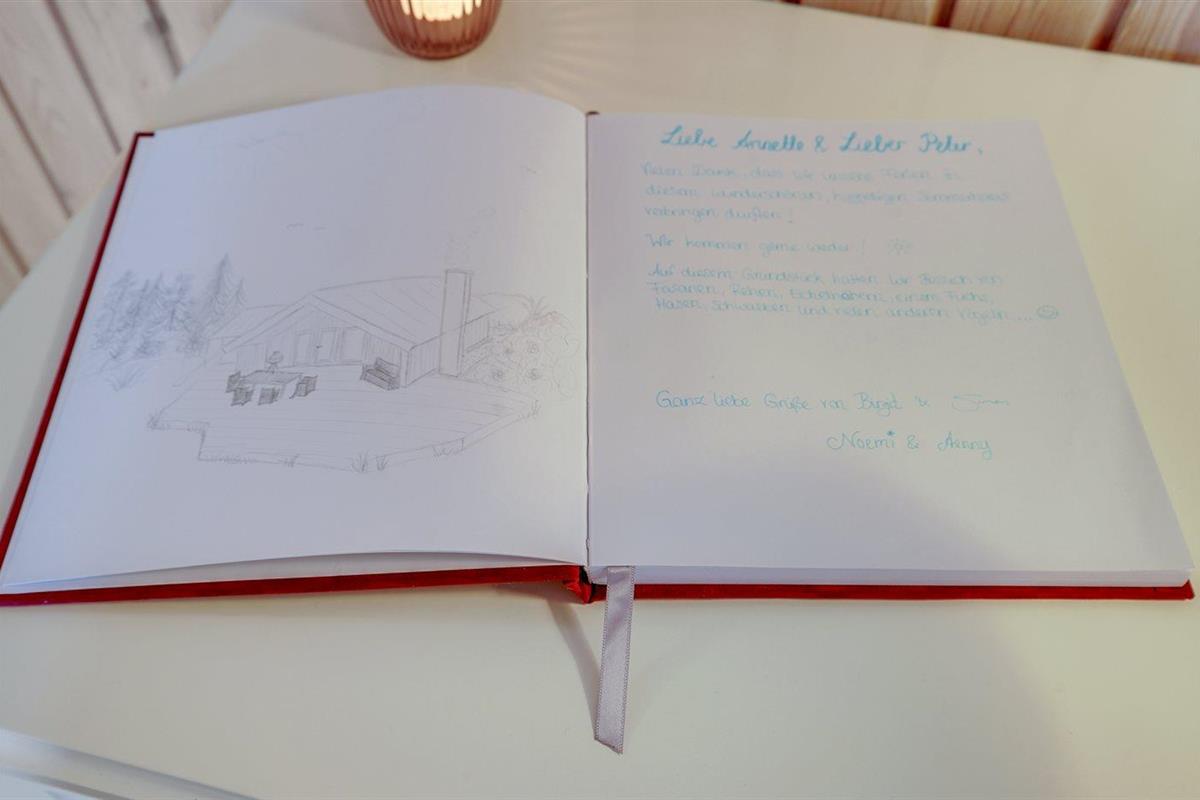 Liebe Annette & Lieber Peter,
Vielen Dank, dass wir unsere Ferien in
diesem wunderschönen, hyggeligen Sommerhaus
verbringen durften!
Wir kommen gerne wieder!
Auf diesem Grundstück hatten wir Besuch von
Fasanen, Rehen, Eichhörnchen, einem Fuchs,
Hasen, Schwalben und vielen anderen Vögeln... ☺
Ganz liebe Grüße von Birgit &
Noemi & Aenny